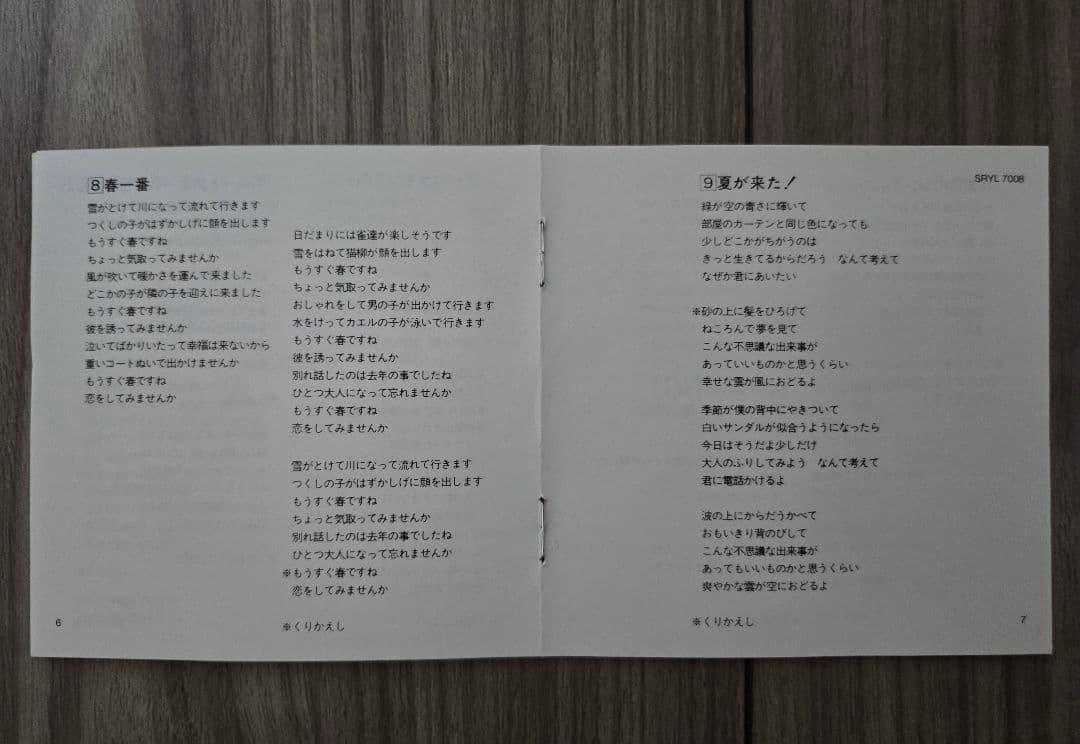 8 春一番
雪がとけて川になって流れて行きます
つくしの子がはずかしげに顔を出します
もうすぐ春ですね
ちょっと気取ってみませんか
風が吹いて暖かさを運んで来ました
どこかの子が隣の子を迎えに来ました
もうすぐ春ですね
彼を誘ってみませんか
泣いてばかりいたって幸福は来ないから
重いコートぬいで出かけませんか
もうすぐ春ですね
恋をしてみませんか
日だまりには雀達が楽しそうです
雪をはねて猫柳が顔を出します
もうすぐ春ですね
ちょっと気取ってみませんか
おしゃれをして男の子が出かけて行きます
水をけってカエルの子が泳いで行きます
もうすぐ春ですね
彼を誘ってみませんか
別れ話したのは去年の事でしたね
ひとつ大人になって忘れませんか
もうすぐ春ですね
恋をしてみませんか
雪がとけて川になって流れて行きます
つくしの子がはずかしげに顔を出します
もうすぐ春ですね
ちょっと気取ってみませんか
別れ話したのは去年の事でしたね
ひとつ大人になって忘れませんか
※もうすぐ春ですね
恋をしてみませんか
※くりかえし
6
9 夏が来た!
SRYL 7008
緑が空の青さに輝いて
部屋のカーテンと同じ色になっても
少しどこかがちがうのは
きっと生きてるからだろう　なんて考えて
なぜか君にあいたい
※砂の上に髪をひろげて
ねころんで夢を見て
こんな不思議な出来事が
あっていいものかと思うくらい
幸せな雲が風におどるよ
季節が僕の背中にやきついて
白いサンダルが似合うようになったら
今日はそうだよ少しだけ
大人のふりしてみよう　なんて考えて
君に電話かけるよ
波の上にからだうかべて
おもいきり背のびして
こんな不思議な出来事が
あってもいいものかと思うくらい
爽やかな雲が空におどるよ
※くりかえし
7